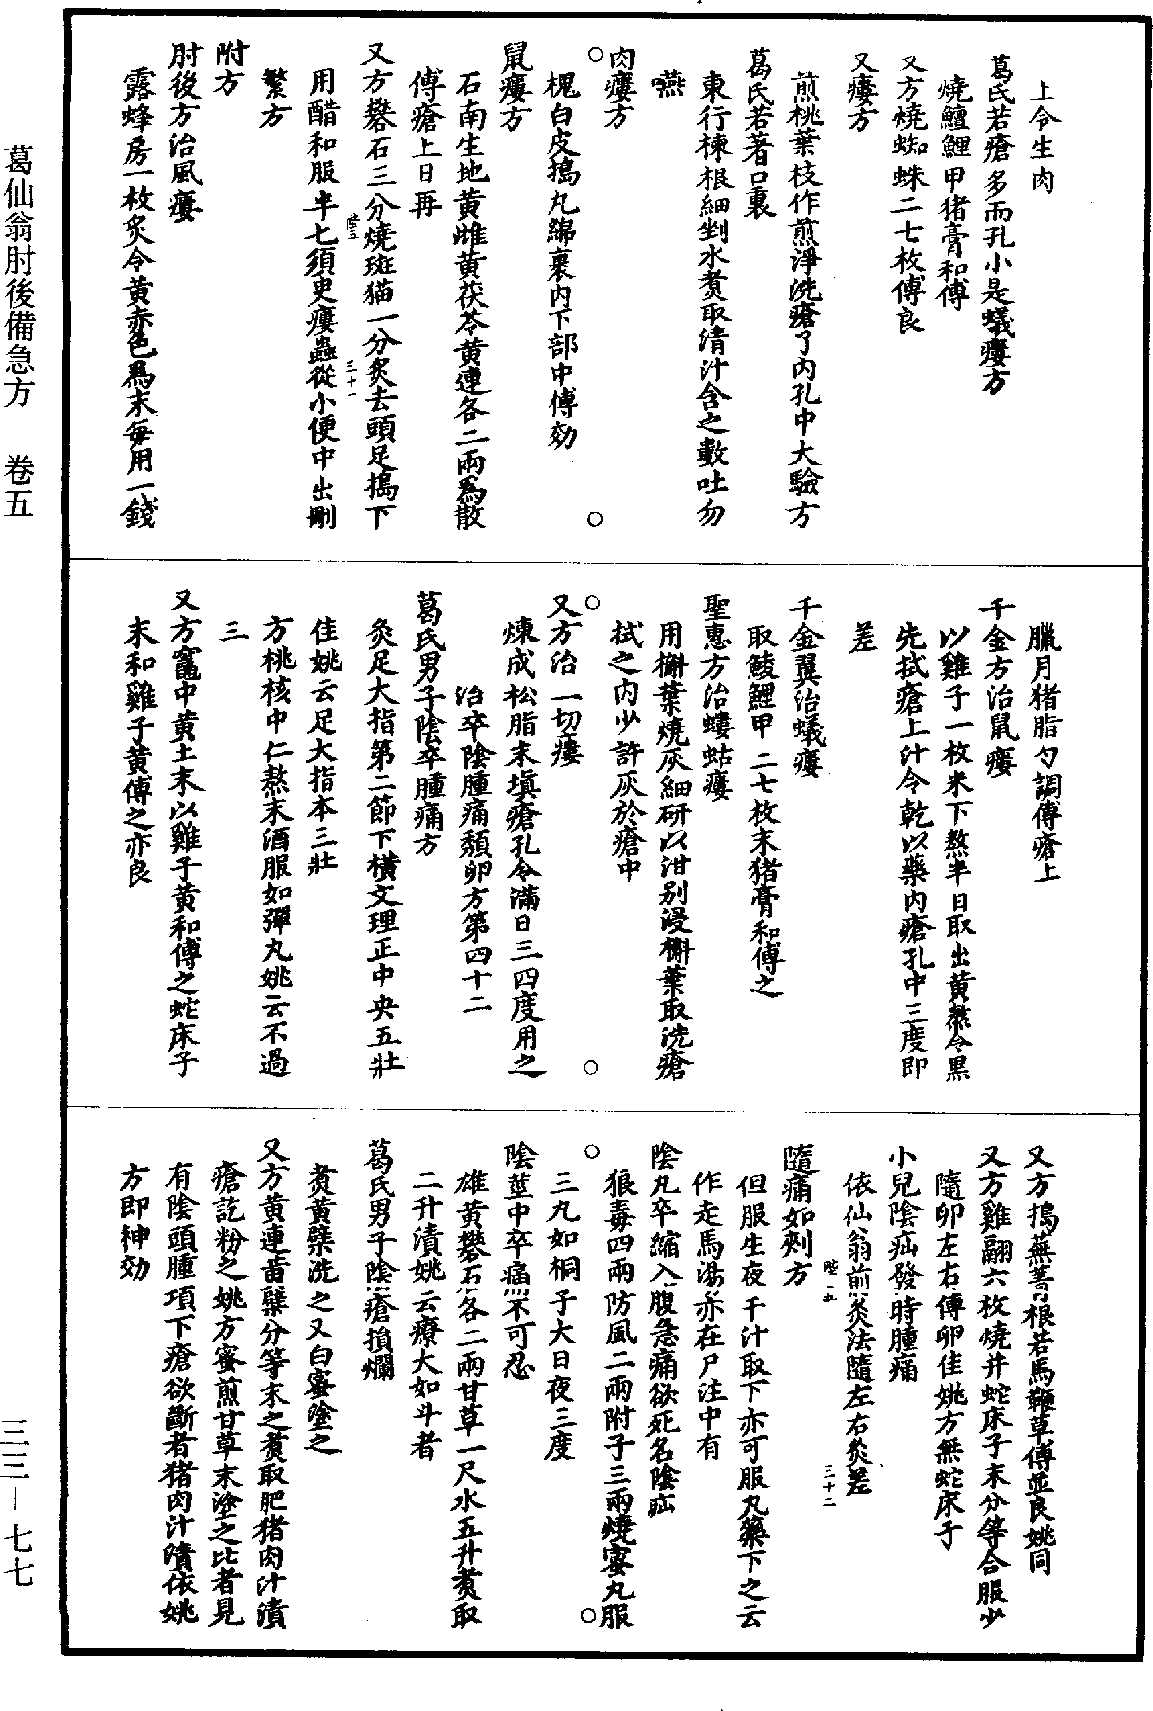 上令生肉
葛氏若瘡多而孔小是蟻瘻方
燒鱣鯉甲猪膏和傅
又方燒蜘蛛二七枚傅良
又瘻方
煎桃葉枝作煎淨洗瘡了内孔中大驗方
葛氏若著口裏
東行楝根細剉水煑取清汁含之數吐勿
嚥
肉瘻方
槐白皮搗丸綿裹内下部中傅効
鼠瘻方
石南生地黄雌黄茯苓黄連各二兩爲散
傅瘡上日再
又方礬石三分燒斑猫一分炙去頭足搗下
用醋和服半匕須臾瘻蟲從小便中出刪
繁方
附方
肘後方治風瘻
露蜂房一枚炙令黄赤色爲末每用一錢
臘月猪脂勺調傅瘡上
千金方治鼠瘻
以雞子一枚米下熬半日取出黄熬令黒
先拭瘡上汁令乾以藥内瘡孔中三度即
差
千金翼治蟻瘻
取鯪鯉甲二七枚末猪膏和傅之
聖惠方治螻蛄瘻
用槲葉燒灰細研以泔别浸槲葉取洗瘡
拭之内少許灰於瘡中
又方治一切瘻
煉成松脂末填瘡孔令滿日三四度用之
治卒陰腫痛頽卵方第四十二
葛氏男子陰卒腫痛方
灸足大指第二節下横文理正中央五壯
佳姚云足大指本三壯
方桃核中仁熬末酒服如彈丸姚云不過
三
又方竈中黄土末以雞子黄和傅之蛇床子
末和雞子黄傅之亦良
又方搗蕪菁根若馬鞭草傅並良姚同
又方雞翮六枚燒并蛇床子末分等合服少
隨卵左右傅卵佳姚方無蛇床子
小兒陰疝發時腫痛
依仙翁前灸法隨左右灸差
隨痛如刺方
但服生夜干汁取下亦可服丸藥下之云
作走馬湯亦在尸注中有
陰丸卒縮入腹急痛欲死名陰疝
狼毒四兩防風二兩附子三兩燒蜜丸服
三丸如桐子大日夜三度
陰莖中卒痛不可忍
雄黄礬石各二兩甘草一尺水五升煑取
二升漬姚云療大如斗者
葛氏男子陰瘡損爛
煑黄蘗洗之又白蜜塗之
又方黄連黄蘗分等末之煑取肥猪肉汁漬
瘡訖粉之姚方蜜煎甘草末塗之比者見
有陰頭腫項下瘡欲斷者猪肉汁漬依姚
方即神効
葛仙翁肘後備急方 卷五
三三－七七